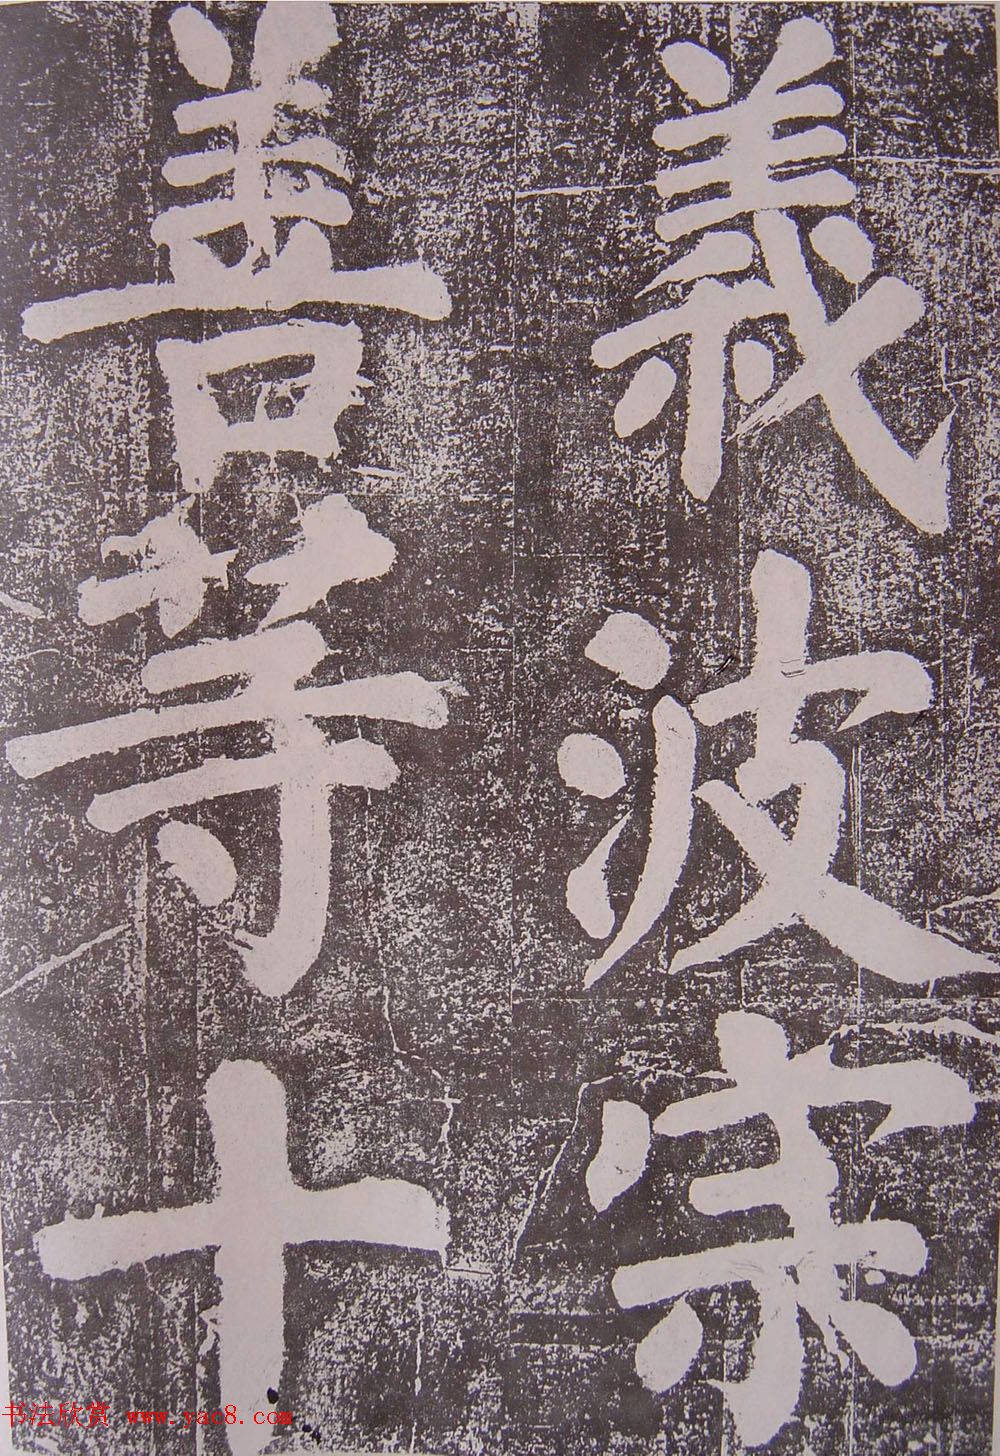 義波宗
善等十
书法欣赏 www.yac8.com